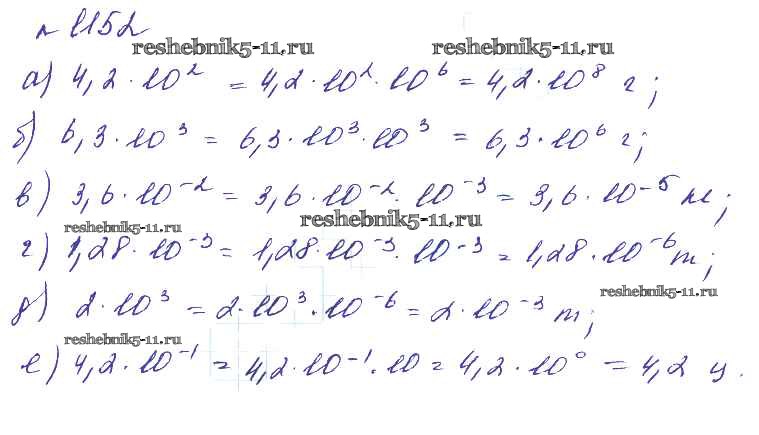 № 1152
reshebnik5-11.ru reshebnik5-11.ru
а) 4,2 · 10² = 4,2 · 10² · 10⁶ = 4,2 · 10⁸ г;
б) 6,3 · 10³ = 6,3 · 10³ · 10³ = 6,3 · 10⁶ г;
в) 3,6 · 10⁻² = 3,6 · 10⁻² · 10⁻³ = 3,6 · 10⁻⁵ кг;
reshebnik5-11.ru reshebnik5-11.ru
г) 1,28 · 10⁻³ = 1,28 · 10⁻³ · 10⁻³ = 1,28 · 10⁻⁶ т;
reshebnik5-11.ru
д) 2 · 10³ = 2 · 10³ · 10⁻⁶ = 2 · 10⁻³ т;
reshebnik5-11.ru
е) 4,2 · 10⁻¹ = 4,2 · 10⁻¹ · 10 = 4,2 · 10⁰ = 4,2 ц.